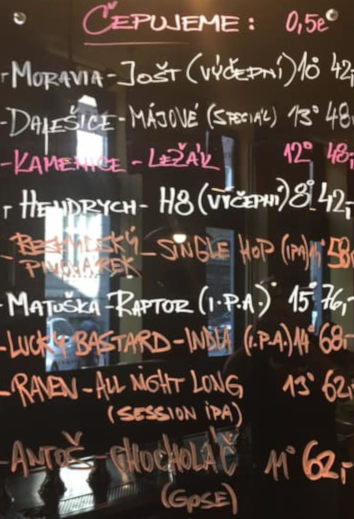 ČEPUJEME: 0,5ℓ
-MORAVIA-JOŠT (VÝČEPNÍ) 10° 42,-
-DALEŠICE-MÁJOVÉ (SPECIÁL) 13° 48,-
-KAMENICE-LEŽÁK 12° 48,-
-HENDRYCH-H8 (VÝČEPNÍ) 8° 42,-
-BESKYDSKÝ PIVOVÁREK-SINGLE HOP (IPA) 58,-
-MATUŠKA-RAPTOR (I.P.A.) 15° 76,-
-LUCKY BASTARD-INDIA (I.P.A.) 14° 68,-
-RAVEN-ALL NIGHT LONG 13° 62,-
(SESSION IPA)
-ANTOŠ-CHOCHOLÁČ 11° 62,-
(GOSE)